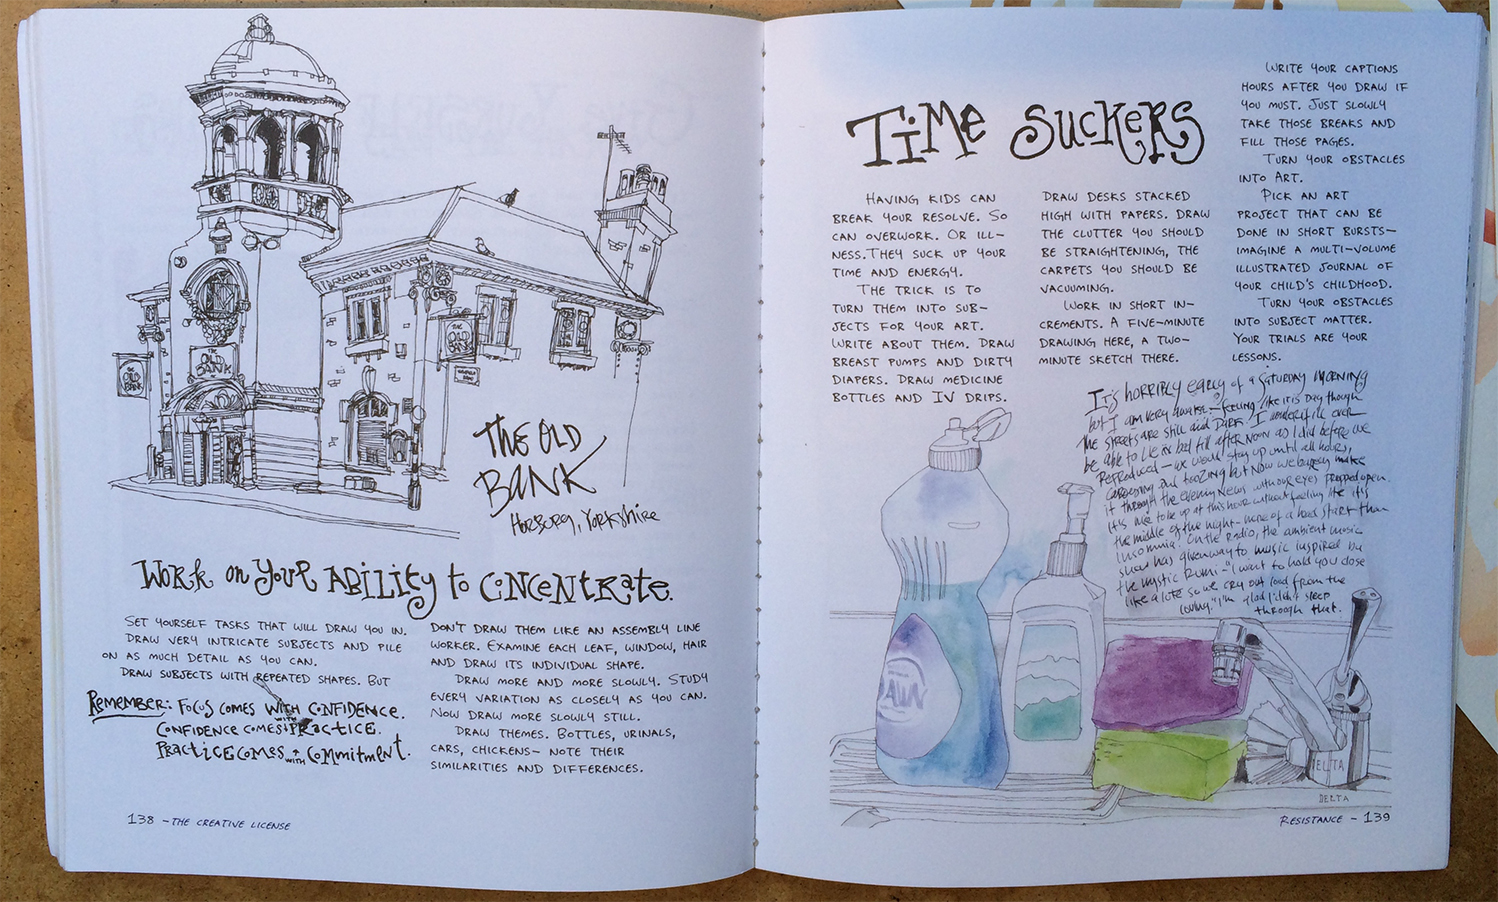 THE OLD BANK
THE OLD BANK
THE OLD BANK
THE OLD
BANK
HORBURY, YORKSHIRE
WORK ON YOUR ABILITY TO CONCENTRATE.
SET YOURSELF TASKS THAT WILL DRAW YOU IN.
DRAW VERY INTRICATE SUBJECTS AND PILE
ON AS MUCH DETAIL AS YOU CAN.
DRAW SUBJECTS WITH REPEATED SHAPES. BUT
REMEMBER: FOCUS COMES WITH CONFIDENCE.
CONFIDENCE COMES WITH PRACTICE.
PRACTICE COMES WITH COMMITMENT.
DON'T DRAW THEM LIKE AN ASSEMBLY LINE
WORKER. EXAMINE EACH LEAF, WINDOW, HAIR
AND DRAW ITS INDIVIDUAL SHAPE.
DRAW MORE AND MORE SLOWLY. STUDY
EVERY VARIATION AS CLOSELY AS YOU CAN.
NOW DRAW MORE SLOWLY STILL.
DRAW THEMES. BOTTLES, URINALS,
CARS, CHICKENS— NOTE THEIR
SIMILARITIES AND DIFFERENCES.
138 – THE CREATIVE LICENSE
TIME SUCKERS
HAVING KIDS CAN
BREAK YOUR RESOLVE. SO
CAN OVERWORK. OR ILL-
NESS. THEY SUCK UP YOUR
TIME AND ENERGY.
THE TRICK IS TO
TURN THEM INTO SUB-
JECTS FOR YOUR ART.
WRITE ABOUT THEM. DRAW
BREAST PUMPS AND DIRTY
DIAPERS. DRAW MEDICINE
BOTTLES AND IV DRIPS.
DRAW DESKS STACKED
HIGH WITH PAPERS. DRAW
THE CLUTTER YOU SHOULD
BE STRAIGHTENING, THE
CARPETS YOU SHOULD BE
VACUUMING.
WORK IN SHORT IN-
CREMENTS. A FIVE-MINUTE
DRAWING HERE, A TWO-
MINUTE SKETCH THERE.
WRITE YOUR CAPTIONS
HOURS AFTER YOU DRAW IF
YOU MUST. JUST SLOWLY
TAKE THOSE BREAKS AND
FILL THOSE PAGES.
TURN YOUR OBSTACLES
INTO ART.
PICK AN ART
PROJECT THAT CAN BE
DONE IN SHORT BURSTS—
IMAGINE A MULTI-VOLUME
ILLUSTRATED JOURNAL OF
YOUR CHILD'S CHILDHOOD.
TURN YOUR OBSTACLES
INTO SUBJECT MATTER.
YOUR TRIALS ARE YOUR
LESSONS.
It's horribly early of a Saturday morning
but I am very awake - feeling like it is day though
the streets are still and dark. I wonder if I'll ever
be able to lie in bed till after noon as I did before we
reproduced — we would stay up until all hours,
carousing and boozing but now we barely make
it through the evening news with our eyes propped open.
It's nice to be up at this hour without feeling like it's
the middle of the night - more of a head start than
insomnia. On the radio, the ambient music
show has given way to music inspired by
the mystic Rumi - "I want to hold you close
like a lute so we cry out loud from the
loving." I'm glad I didn't sleep
through that.
DAWN
DELTA
DELTA
RESISTANCE – 139